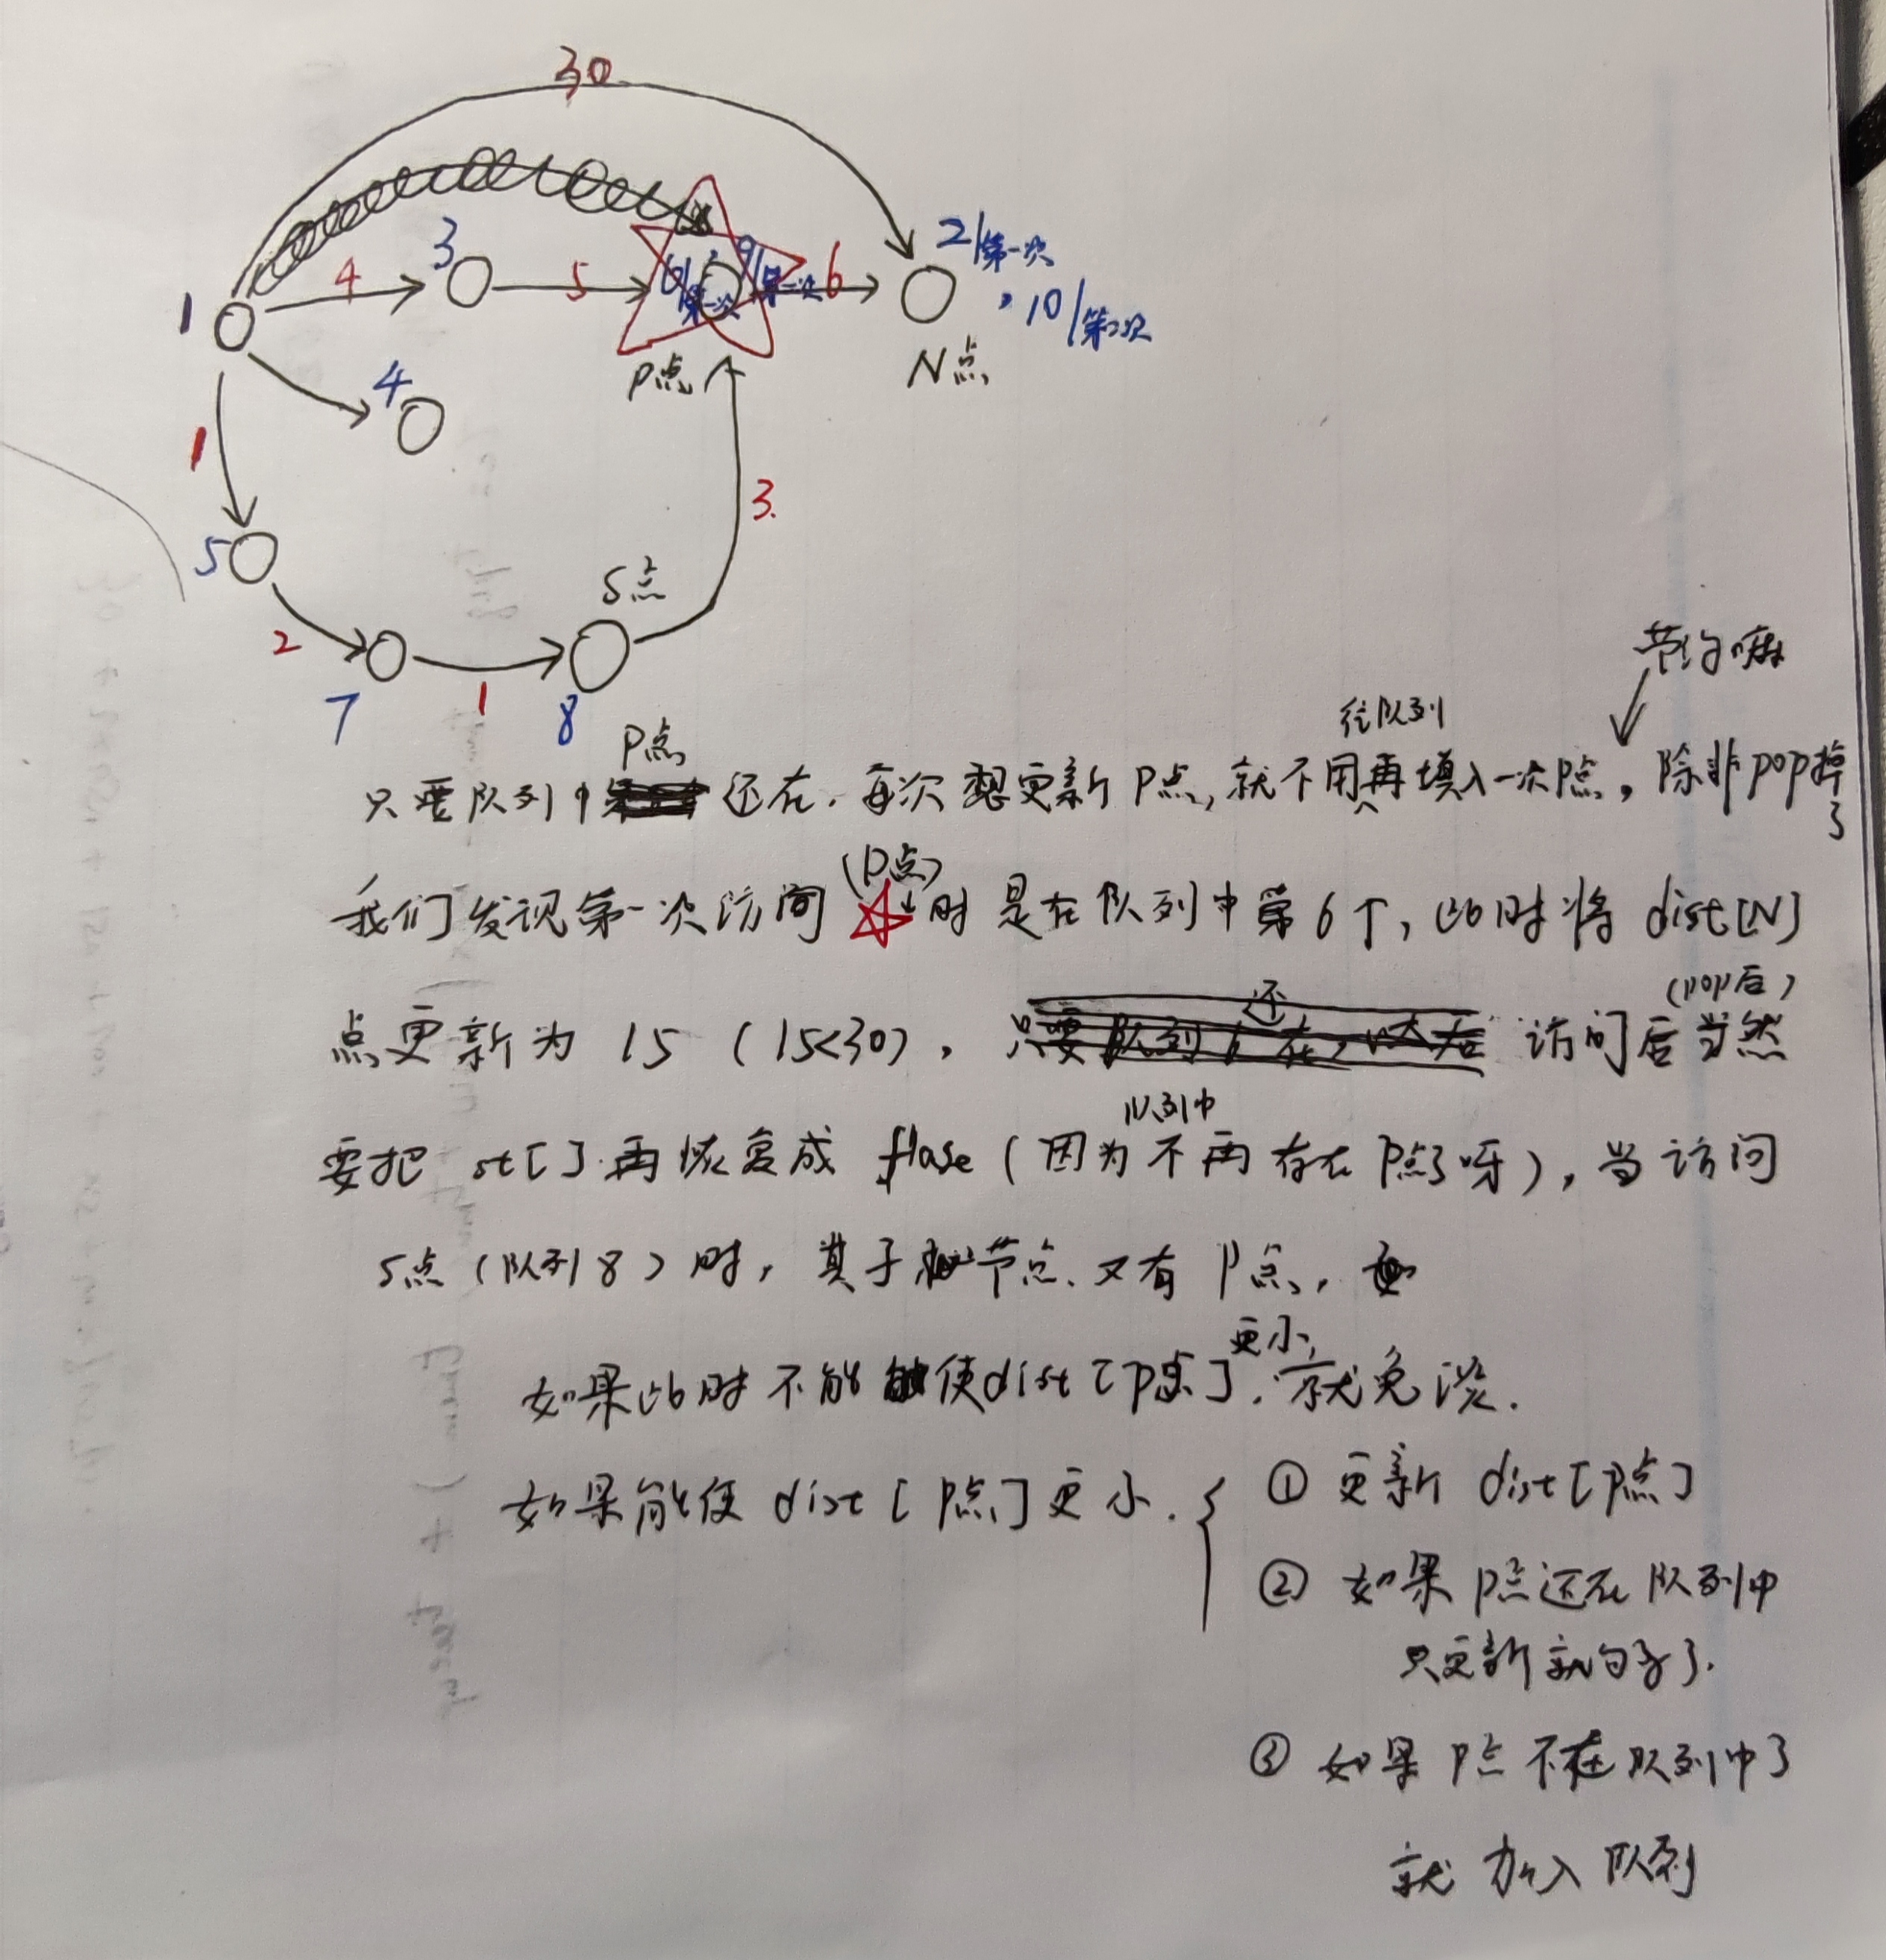 30
3
2/第一次
4
5
6/第一次
9/第二次
6
1
,10/第二次
P点
N点
4
1
3.
5
S点
2
1
7
8
节约嘛
往队列
P点
只要队列中还在,每次想更新P点,就不用再填入一次P点,除非pop掉了
(P点)
我们发现第一次访问☆时是在队列中第6个,此时将dist[N]
还
(pop后)
点更新为15(15<30),只要队列中在,访问后当然
队列中
要把st[]再恢复成flase(因为不再存在P点了呀),当访问
S点(队列8)时,其子节点又有P点,
更小,
如果此时不能使dist[P点].就免谈.
如果能使dist[P点]更小.
①更新dist[P点]
②如果P点还在队列中
只更新就句了了.
③如果P点不在队列中了
就加入队列